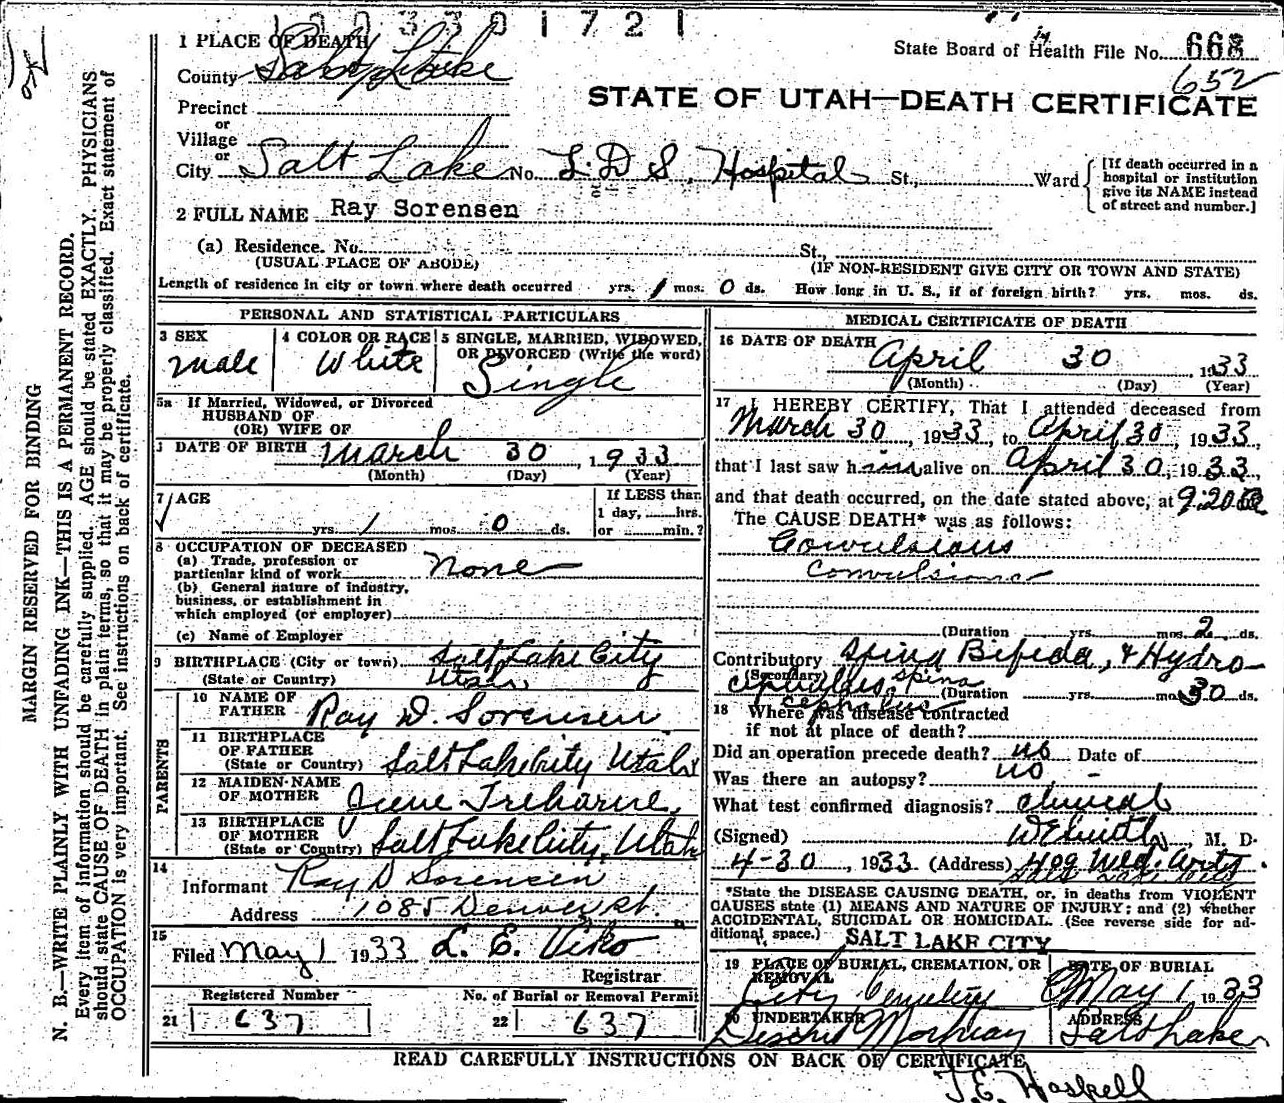 1 PLACE OF DEATH
State Board of Health File No. 668
652
County Salt Lake
STATE OF UTAH—DEATH CERTIFICATE
Precinct
or
Village
or
City Salt Lake No. L.D.S. Hospital St., Ward
[If death occurred in a hospital or institution give its NAME instead of street and number.]
2 FULL NAME Ray Sorensen
(a) Residence. No. St.,
(USUAL PLACE OF ABODE) (IF NON-RESIDENT GIVE CITY OR TOWN AND STATE)
Length of residence in city or town where death occurred yrs. 1 mos. 0 ds. How long in U. S., if of foreign birth? yrs. mos. ds.
PERSONAL AND STATISTICAL PARTICULARS
3 SEX male
4 COLOR OR RACE White
5 SINGLE, MARRIED, WIDOWED, OR DIVORCED (Write the word) Single
5a If Married, Widowed, or Divorced
HUSBAND OF
(OR) WIFE OF
DATE OF BIRTH March 30, 1933
(Month) (Day) (Year)
7 AGE
yrs. 1 mos. 0 ds.
If LESS than
1 day, hrs.
or min.?
8 OCCUPATION OF DECEASED
(a) Trade, profession or
particular kind of work none
(b) General nature of industry,
business, or establishment in
which employed (or employer)
(c) Name of Employer
9 BIRTHPLACE (City or town) Salt Lake City
(State or Country) Utah
PARENTS
10 NAME OF FATHER Ray D. Sorensen
11 BIRTHPLACE OF FATHER
(State or Country) Salt Lake City Utah
12 MAIDEN NAME OF MOTHER Irene Treharne
13 BIRTHPLACE OF MOTHER
(State or Country) Salt Lake City, Utah
14
Informant Ray D Sorensen
Address 1085 Denver St.
15
Filed May 1 1933 L. E. Viko
Registrar
Registered Number
21 637
No. of Burial or Removal Permit
22 637
MEDICAL CERTIFICATE OF DEATH
16 DATE OF DEATH April 30, 1933
(Month) (Day) (Year)
17 I HEREBY CERTIFY, That I attended deceased from
March 30, 1933, to April 30, 1933,
that I last saw him alive on April 30, 1933,
and that death occurred, on the date stated above, at 9:20
The CAUSE DEATH* was as follows:
Convulsions
Convulsions
(Duration yrs. mos. 2 ds.
Contributory Spina Bifida, & Hydro-
(Secondary) cephallus spina
cephalus (Duration yrs. mos. 30 ds.
18 Where was disease contracted
if not at place of death?
Did an operation precede death? no Date of
Was there an autopsy? no -
What test confirmed diagnosis? clinical
(Signed) M. D.
4-30, 1933 (Address) 409 Med. Arts
*State the DISEASE CAUSING DEATH, or, in deaths from VIOLENT
CAUSES state (1) MEANS AND NATURE OF INJURY; and (2) whether
ACCIDENTAL, SUICIDAL OR HOMICIDAL. (See reverse side for ad-
ditional space.) SALT LAKE CITY
19 PLACE OF BURIAL, CREMATION, OR REMOVAL City Cemetery
DATE OF BURIAL May 1 1933
20 UNDERTAKER Deseret Mortuary
ADDRESS Salt Lake
READ CAREFULLY INSTRUCTIONS ON BACK OF CERTIFICATE
J. E. Haskell
MARGIN RESERVED FOR BINDING
N. B.—WRITE PLAINLY WITH UNFADING INK—THIS IS A PERMANENT RECORD.
Every item of information should be carefully supplied. AGE should be stated EXACTLY. PHYSICIANS
should state CAUSE OF DEATH in plain terms, so that it may be properly classified. Exact statement of
OCCUPATION is very important. See instructions on back of certificate.